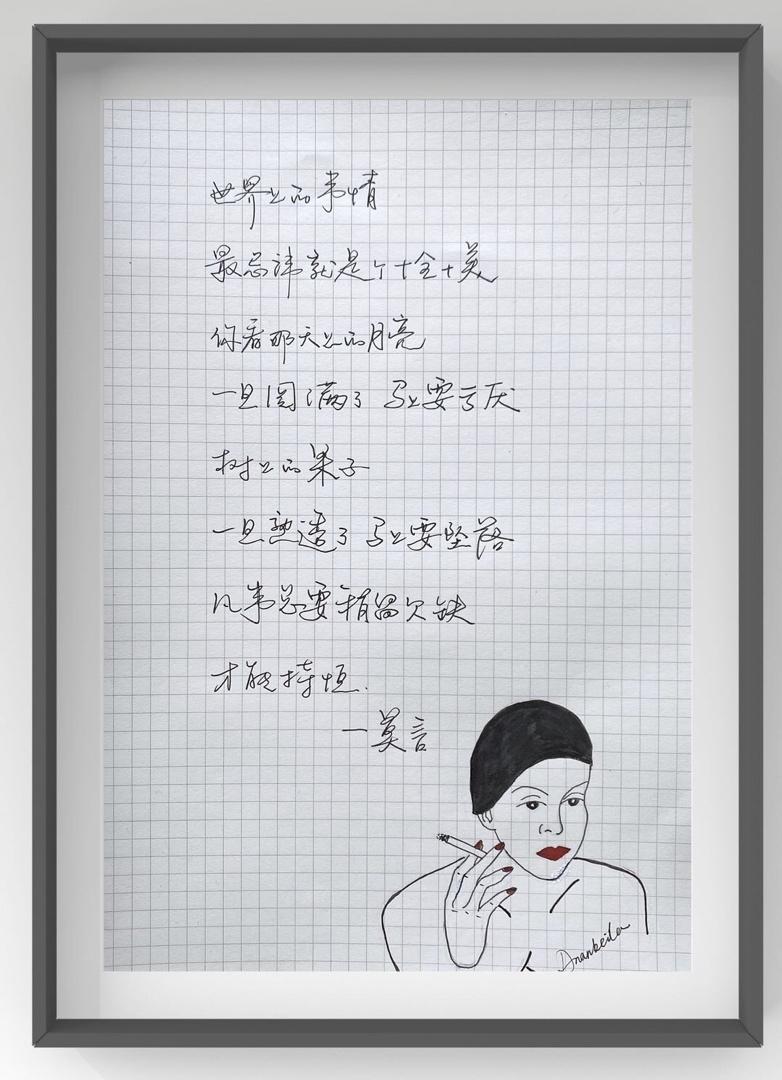 世界上的事情
最忌讳就是个十全十美
你看那天上的月亮
一旦圆满了 马上要亏厌
树上的果子
一旦熟透了 马上要坠落
凡事总要稍留欠缺
才能持恒.
—莫言